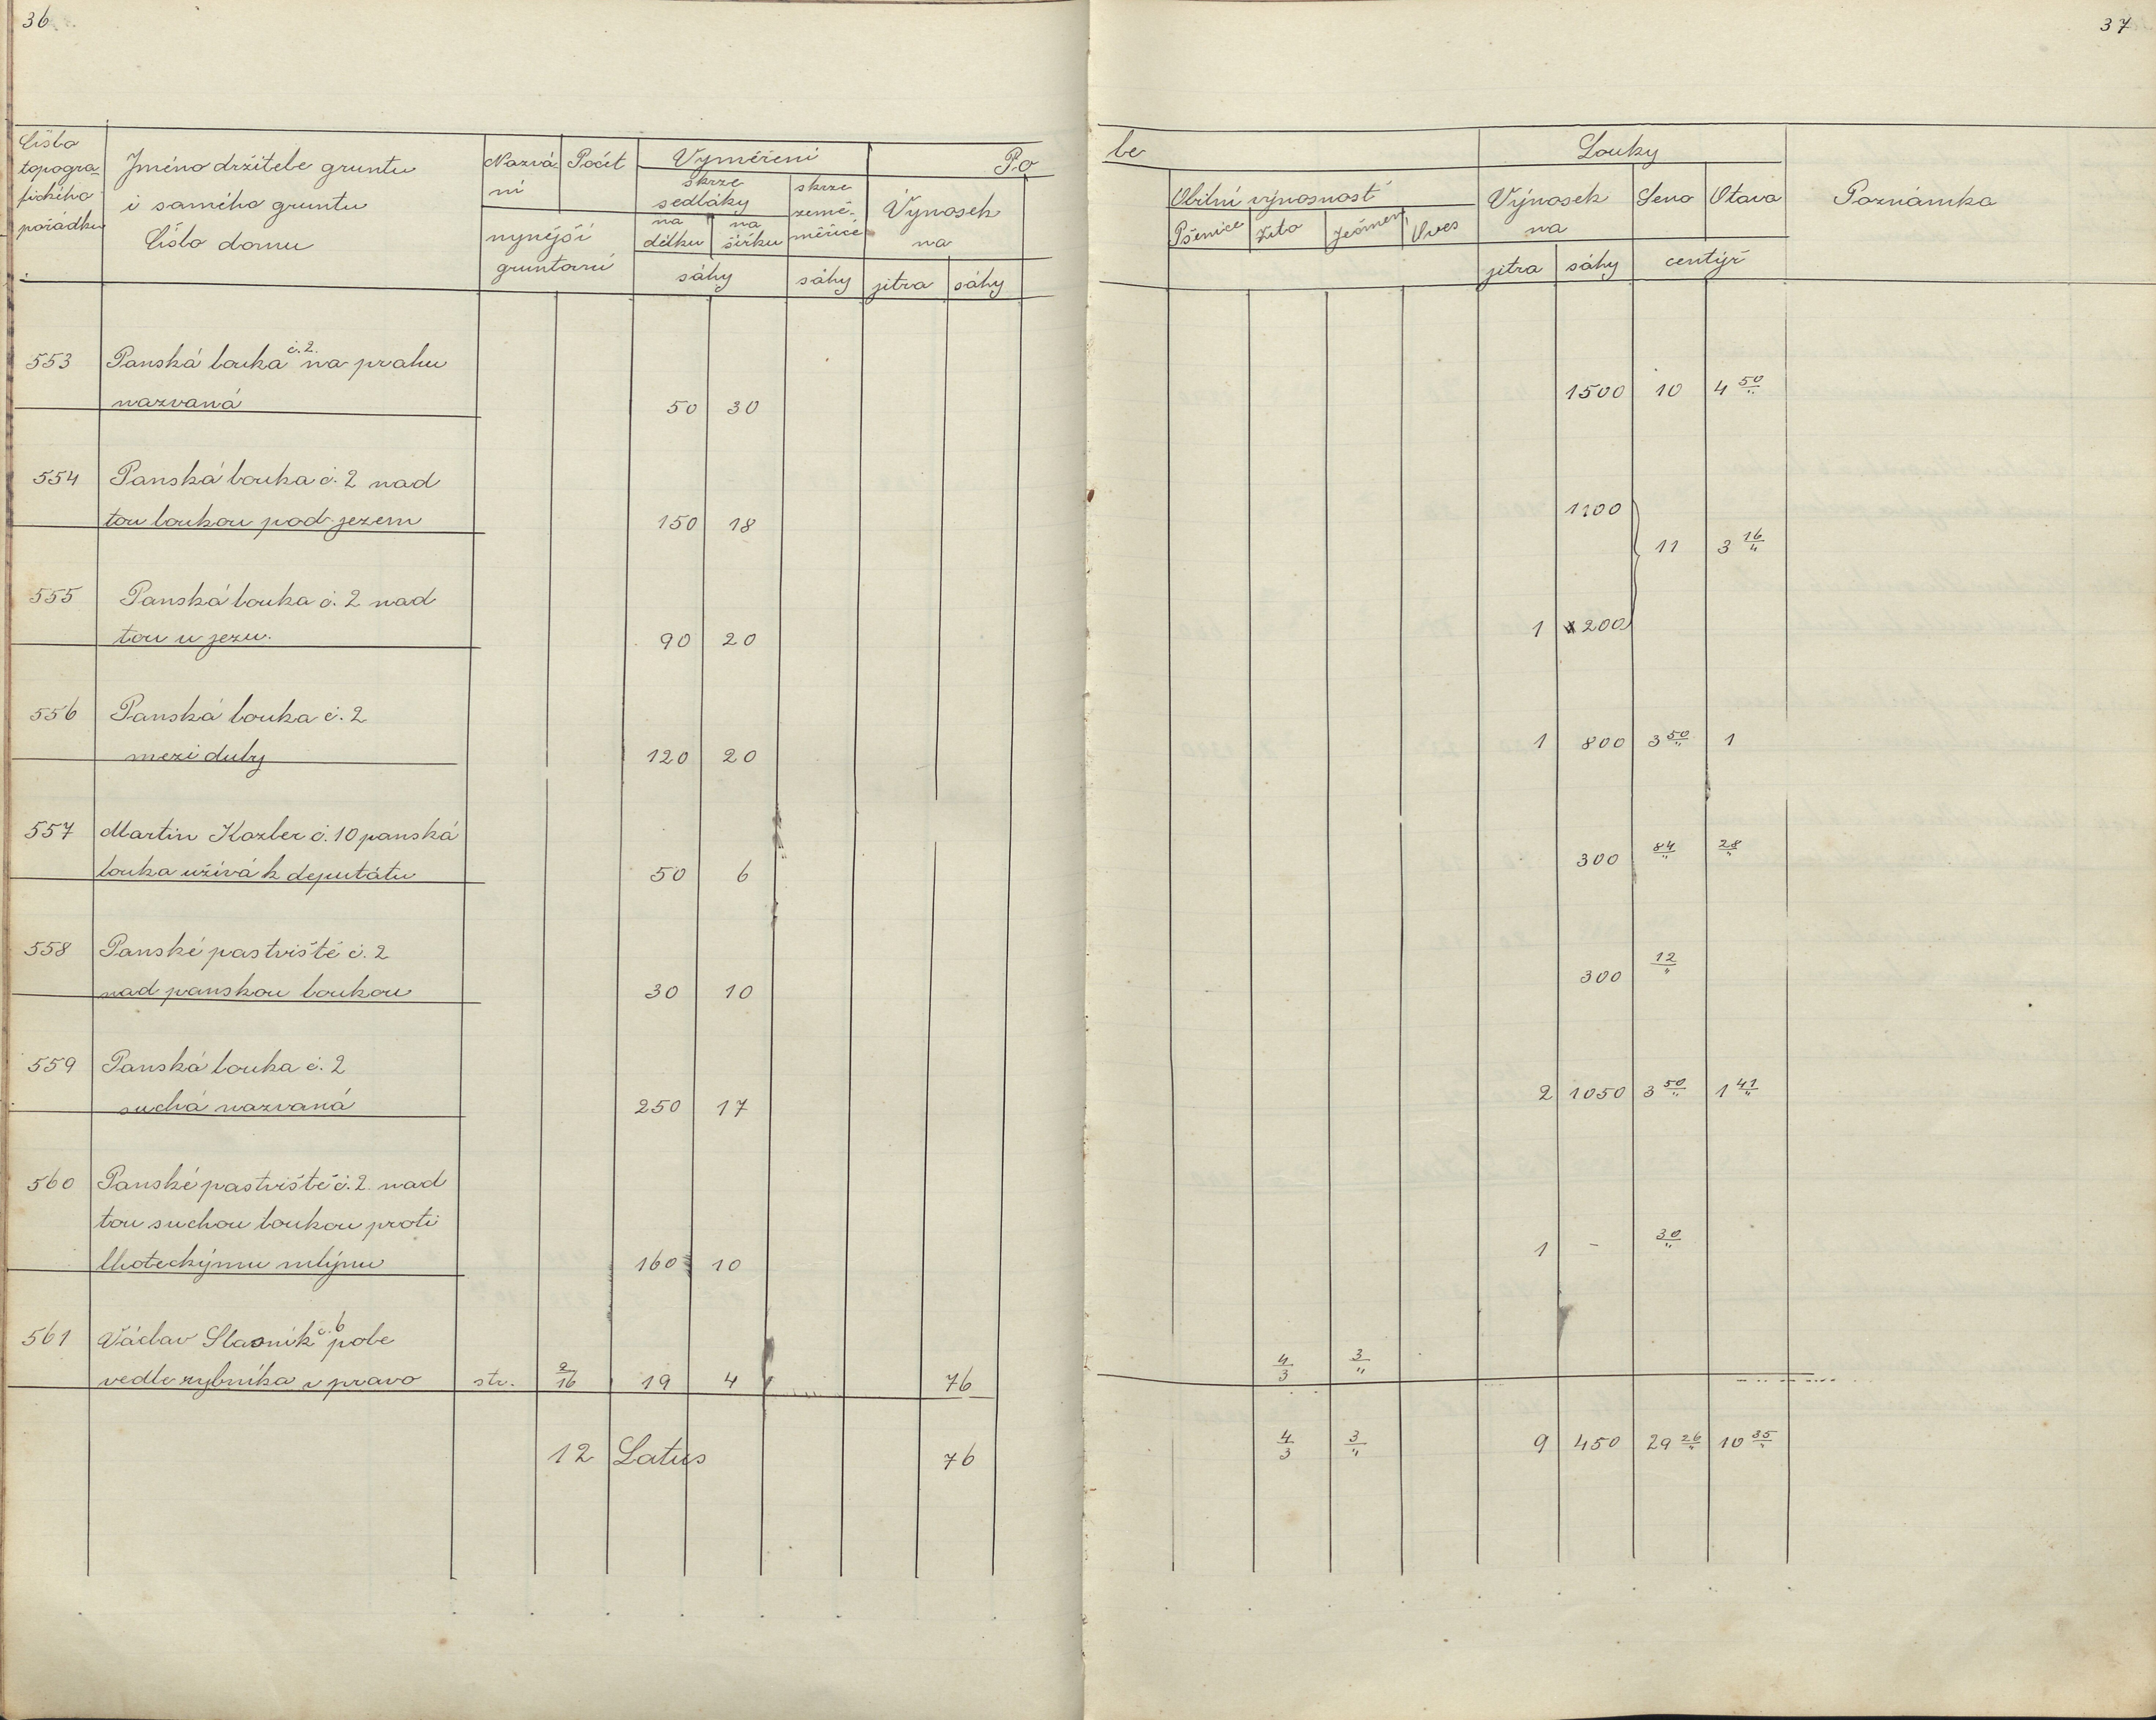 36
37
Číslo topogra-
fického
pořádku
Jméno držitele gruntu
i samého gruntu
Číslo domu
Nazvá-
ní
Počet
nynější
gruntovní
Vyměření
skrze
sedláky
na
délku
na
šířku
skrze
země-
měřiče
sáhy
sáhy
Po
Výnosek
na
jitra
sáhy
le
Obilní výnosnost
Pšenice
Žito
Ječmen
Oves
Louky
Výnosek
na
Seno
Otava
jitra
sáhy
centýř
Poznámka
553 Panská louka č. 2. na prahu
nazvaná 50 30 1500 10 4 50/"
554 Panská louka č. 2 nad
tou loukou pod jezem 150 18 1100
11 3 16/"
555 Panská louka č. 2 nad
tou u jezu. 90 20 1 200
556 Panská louka č. 2
mezi duby 120 20 1 800 3 50/" 1
557 Martin Kozler č. 10 panská
louka užívá k deputátu 50 6 300 84/" 28/"
558 Panské pastviště č. 2
nad panskou loukou 30 10 300 12/"
559 Panská louka č. 2
suchá nazvaná 250 17 2 1050 3 50/" 1 41/"
560 Panské pastviště č. 2 nad
tou suchou loukou proti
lhoteckýmu mlýnu 160 10 1 - 30/"
561 Václav Slavník č. 6 pole
vedle rybníka v pravo str. 2/16 19 4 76 4/3 3/"
12 Latus 76 4/3 3/" 9 450 29 26/" 10 35/"